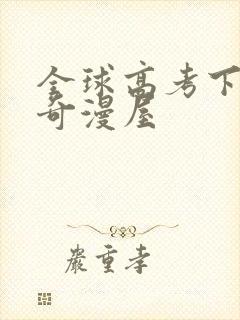 全球高考下
奇漫屋
严重李